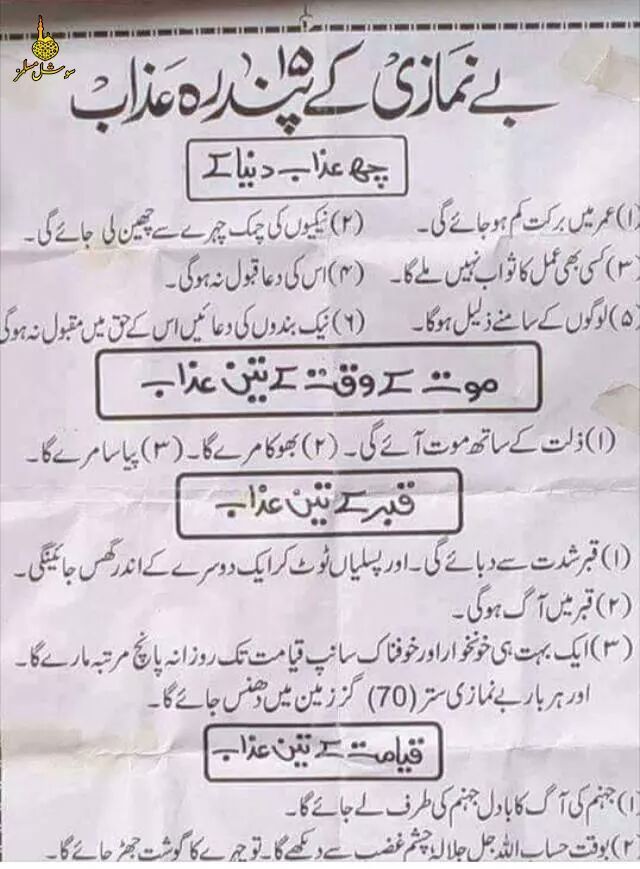 سوشل مسلمز
بے نمازی کے ۱۵ پندرہ عذاب
چھ عذاب دنیا کے
(۱) عمر میں برکت کم ہوجائے گی۔ (۲) نیکیوں کی چمک چہرے سے چھین لی جائے گی۔
(۳) کسی بھی عمل کا ثواب نہیں ملے گا۔ (۴) اس کی دعا قبول نہ ہوگی۔
(۵) لوگوں کے سامنے ذلیل ہوگا۔ (۶) نیک بندوں کی دعائیں اس کے حق میں مقبول نہ ہوگی
موت کے وقت کے تین عذاب
(۱) ذلت کے ساتھ موت آئے گی۔ (۲) بھوکا مرے گا۔ (۳) پیاسا مرے گا۔
قبر کے تین عذاب
(۱) قبر شدت سے دبائے گی۔ اور پسلیاں ٹوٹ کر ایک دوسرے کے اندر گھس جائینگی۔
(۲) قبر میں آگ ہوگی۔
(۳) ایک بہت ہی خونخوار اور خوفناک سانپ قیامت تک روزانہ پانچ مرتبہ مارے گا۔
اور ہر بار بے نمازی ستر (70) گز زمین میں دھنس جائے گا۔
قیامت کے تین عذاب
(۱) جہنم کی آگ کا بادل جہنم کی طرف لے جائے گا۔
(۲) بوقت حساب اللہ جل جلالہ چشم غضب سے دیکھے گا۔ تو چہرے کا گوشت جھڑ جائے گا۔